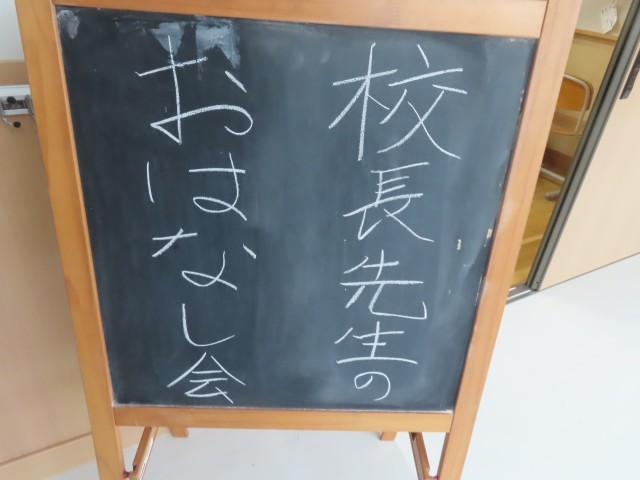 校長先生の
おはなし会